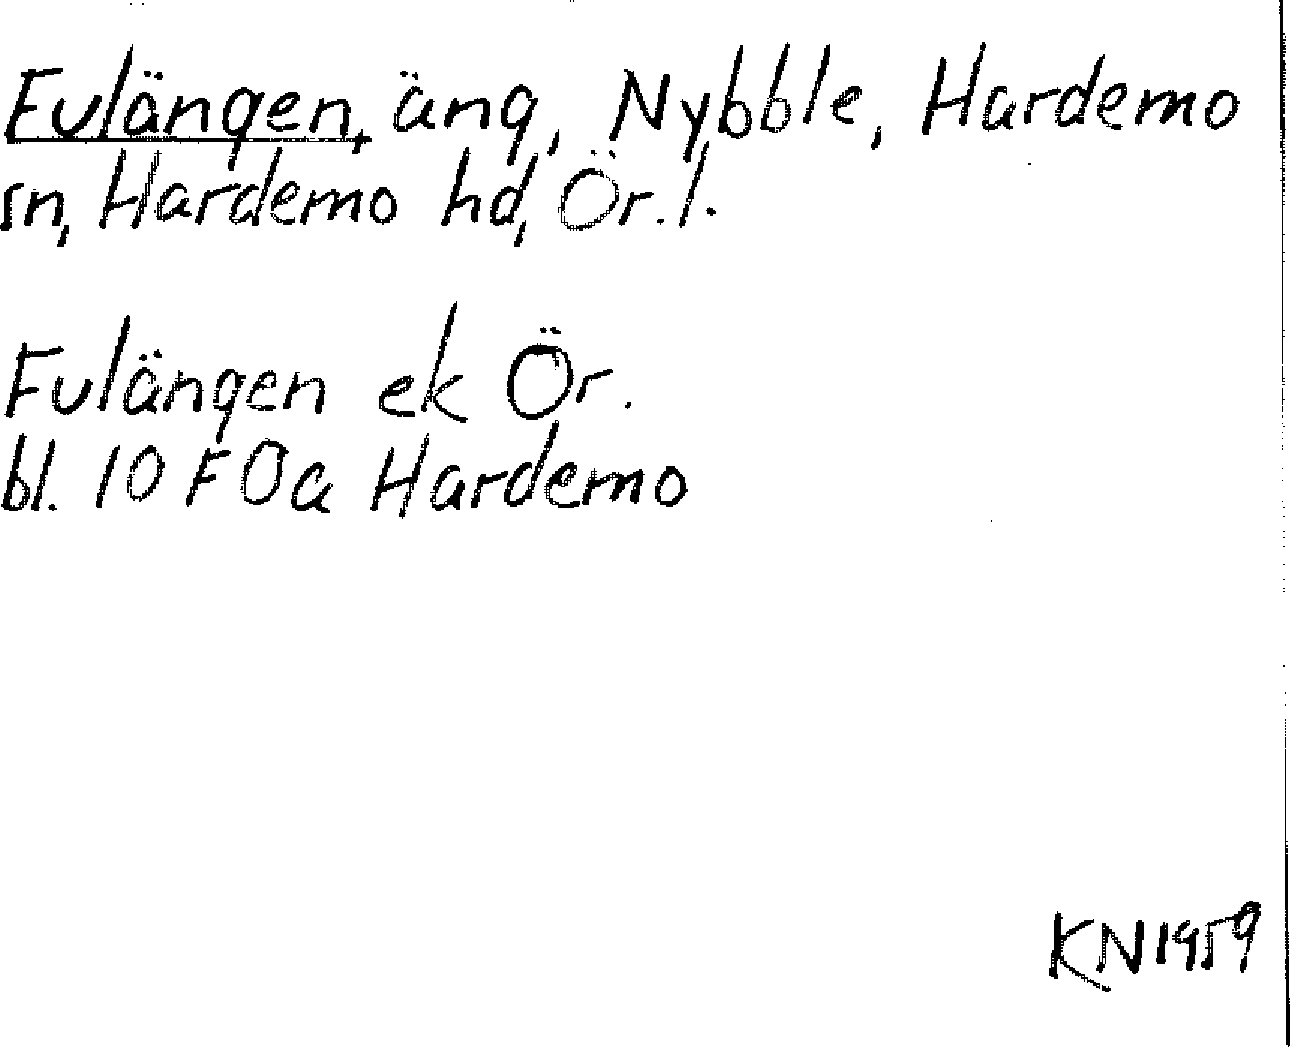 Fulängen, äng, Nybble, Hardemo
sn, Hardemo hd, Ör. l.
Fulängen ek Ör.
bl. 10 F 0a Hardemo
KN 1959